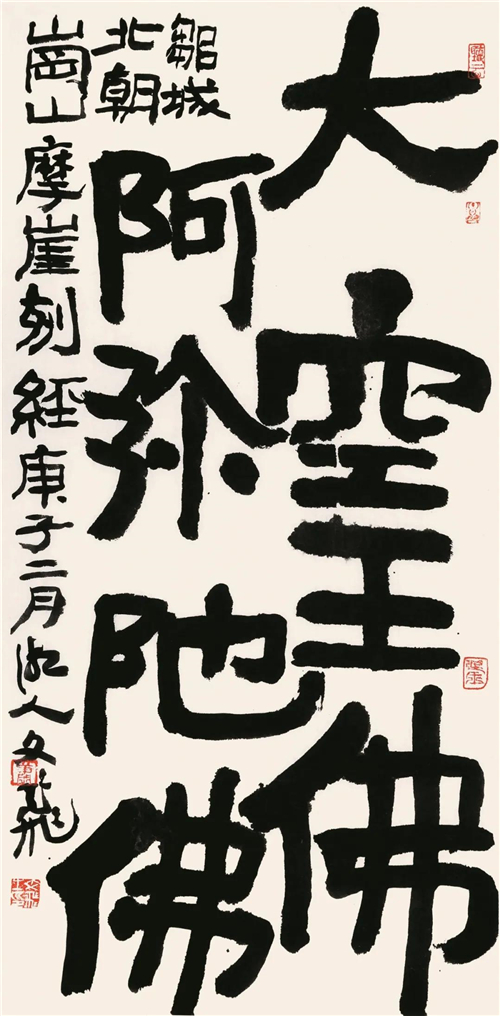 大空王佛
阿弥阤佛
鄒城
北朝
崗山摩崖刻經庚子二月 人文飛